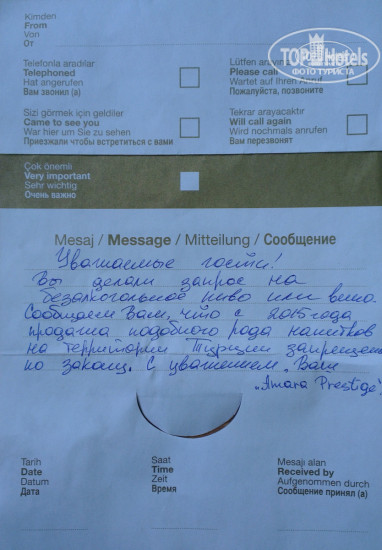 Kimden
From
Von
От
TOPHotels
ФОТО ТУРИСТА
Telefonla aradılar
Telephoned
Hat angerufen
Вам звонил (а)
Lütfen arayınız
Please call
Wartet auf Ihren Anruf
Пожалуйста, позвоните
Sizi görmek için geldiler
Came to see you
War hier um Sie zu sehen
Приезжали чтобы встретиться с вами
Tekrar arayacaktır
Will call again
Wird nochmals anrufen
Вам перезвонят
Çok önemli
Very important
Sehr wichtig
Очень важно
Mesaj / Message / Mitteilung / Сообщение
Уважаемые гости!
Вы делали запрос на
безалкогольное пиво или вино.
Сообщаем Вам, что с 2015 года
продажа подобного рода напитков
на территории Турции запрещена
по закону. С уважением, Ваш
"Amara Prestige".
Tarih
Date
Datum
Дата
Saat
Time
Zeit
Время
Mesajı alan
Received by
Aufgenommen durch
Сообщение принял (а)